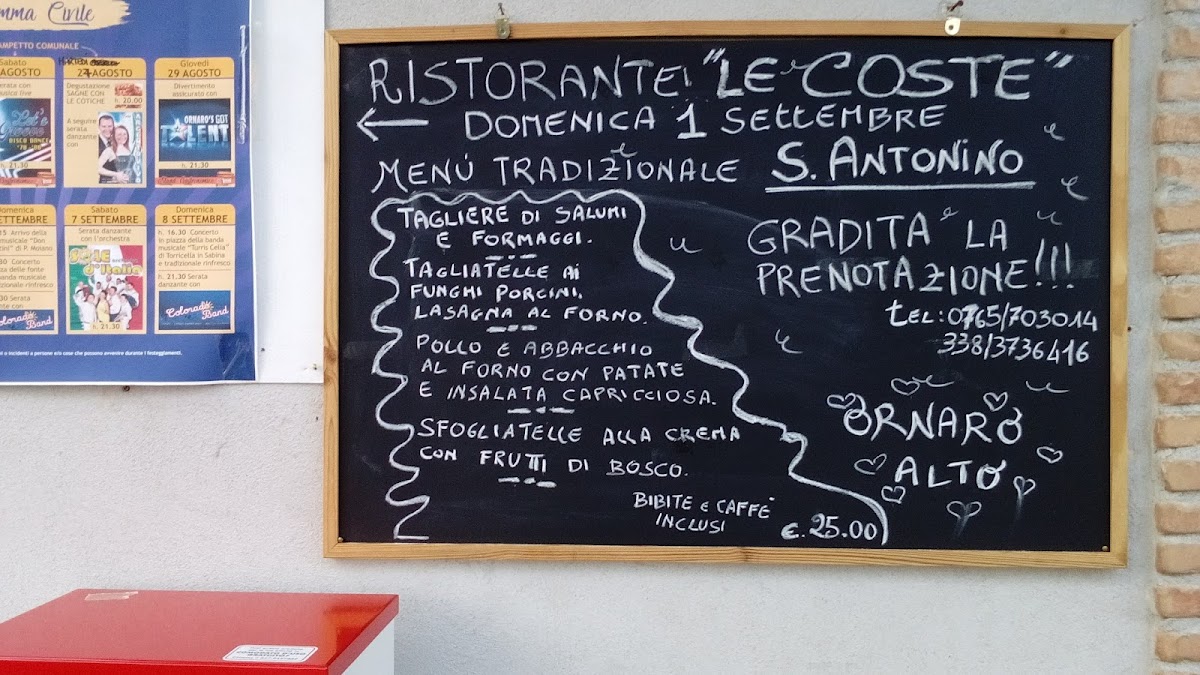 mma Civile
AMPETTO COMUNALE
Sabato
AGOSTO
rata con
musica live
DISCO DANCE
'70 '80
h. 21.30
27 AGOSTO
Degustazione
SAGNE CON
LE COTICHE
h. 20.00
A seguire
serata
danzante
con
Giovedì
29 AGOSTO
Divertimento
assicurato con
ORNARO'S GOT
TALENT
h. 21.30
Domenica
SETTEMBRE
15 Arrivo della
musicale "Don
tini" di P. Moiano
30 Concerto
zza delle fonte
anda musicale
izionale rinfresco
30 Serata
ante con
Colorado Band
Sabato
7 SETTEMBRE
Serata danzante
con l'orchestra
SOLE
d'Italia
h. 21.30
Domenica
8 SETTEMBRE
h. 16.30 Concerto
in piazza della banda
musicale "Turris Celia"
di Torricella in Sabina
e tradizionale rinfresco
h. 21.30 Serata
danzante con
Colorado
Band
o incidenti a persone e/o cose che possano avvenire durante i festeggiamenti.
RISTORANTE "LE COSTE"
← DOMENICA 1 SETTEMBRE
MENÚ TRADIZIONALE S. ANTONINO
TAGLIERE DI SALUMI
E FORMAGGI.
TAGLIATELLE Ai
FUNGHI PORCINI.
LASAGNA AL FORNO.
POLLO E ABBACCHIO
AL FORNO CON PATATE
E INSALATA CAPRICCIOSA.
SFOGLIATELLE ALLA CREMA
CON FRUTTI DI BOSCO.
BIBITE e CAFFÈ
INCLUSI
€. 25.00
GRADITA LA
PRENOTAZIONE!!!
tel: 0765/703014
338/3736416
ORNARO
ALTO